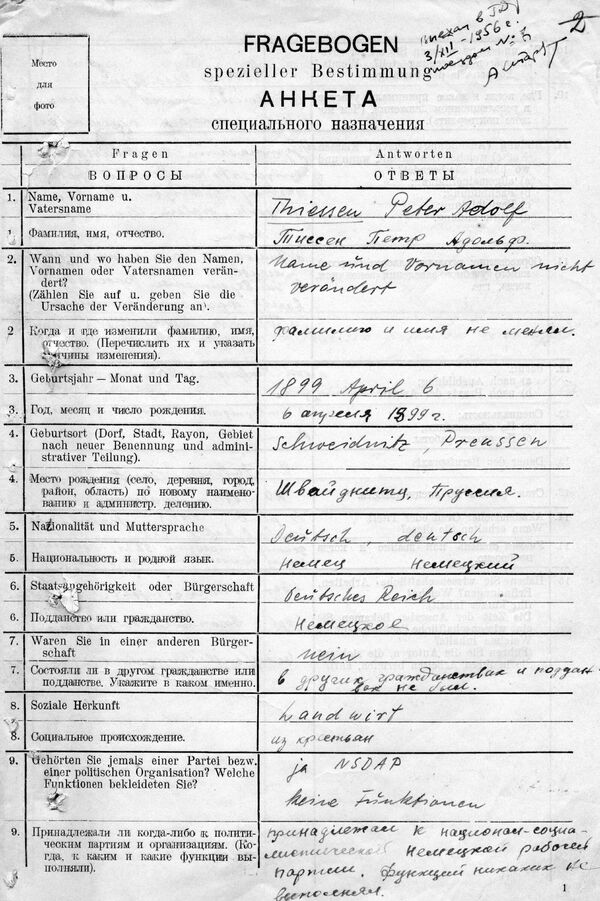 выехал в ГДР
3/XII – 1956 г.
поездом №
2
Место
для
фото
FRAGEBOGEN
spezieller Bestimmung
АНКЕТА
специального назначения
Fragen
Antworten
ВОПРОСЫ
ОТВЕТЫ
1. Name, Vorname u.
Vatersname
Thiessen Peter Adolf
1. Фамилия, имя, отчество.
Тиссен Петр Адольф.
2. Wann und wo haben Sie den Namen,
Vornamen oder Vatersnamen verän-
dert?
(Zählen Sie auf u. geben Sie die
Ursache der Veränderung an).
Name und Vornamen nicht
verändert
2 Когда и где изменили фамилию, имя,
отчество. (Перечислить их и указать
причины изменения).
фамилию и имя не менял.
3. Geburtsjahr – Monat und Tag.
1899 April 6
3. Год, месяц и число рождения.
6 апреля 1899 г.
4. Geburtsort (Dorf, Stadt, Rayon, Gebiet
nach neuer Benennung und admini-
strativer Teilung).
Schweidnitz, Preussen
4. Место рождения (село, деревня, город,
район, область) по новому наимено-
ванию и администр. делению.
Швайднитц, Пруссия.
5. Nationalität und Muttersprache
Deutsch, deutsch
5. Национальность и родной язык.
немец немецкий
6. Staatsangehörigkeit oder Bürgerschaft
Deutsches Reich
6. Подданство или гражданство.
Немецкое
7. Waren Sie in einer anderen Bürger-
schaft
nein
7. Состояли ли в другом гражданстве или
подданстве. Укажите в каком именно.
в других гражданствах и поддан-
вах не был.
8. Soziale Herkunft
Landwirt
8. Социальное происхождение.
из крестьян
9. Gehörten Sie jemals einer Partei bezw.
einer politischen Organisation? Welche
Funktionen bekleideten Sie?
ja NSDAP
keine Funktionen
9. Принадлежали ли когда-либо к полити-
ческим партиям и организациям. (Ко-
гда, к каким и какие функции вы-
полняли).
принадлежал к национал-социа-
листической немецкой рабочей
партии. Функций никаких не
выполнял.
1